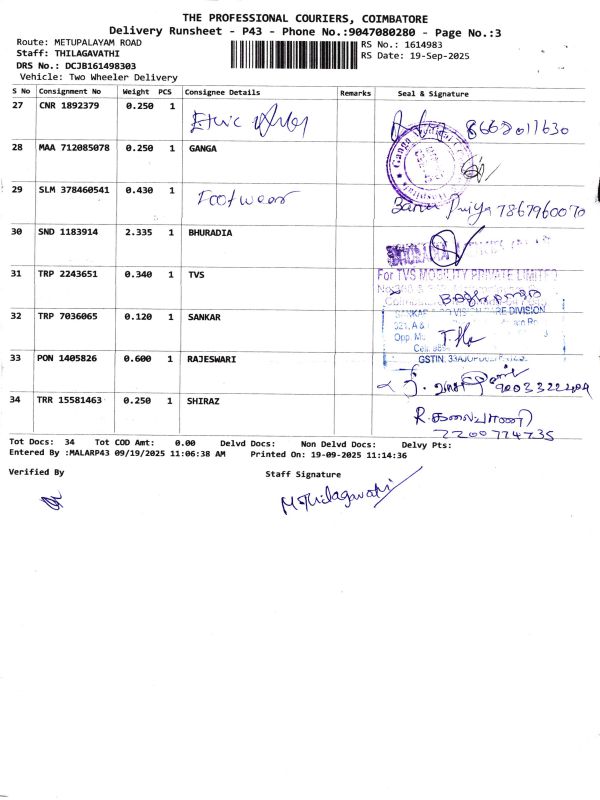 THE PROFESSIONAL COURIERS, COIMBATORE
Delivery Runsheet - P43 - Phone No.:9047080280 - Page No.:3
Route: METUPALAYAM ROAD RS No.: 1614983
Staff: THILAGAVATHI RS Date: 19-Sep-2025
DRS No.: DCJB161498303
Vehicle: Two Wheeler Delivery
S No Consignment No Weight PCS Consignee Details Remarks Seal & Signature
27 CNR 1892379 0.250 1 8668011630
28 MAA 712085078 0.250 1 GANGA
29 SLM 378460541 0.430 1 Footwear Priya 7867960070
30 SND 1183914 2.335 1 BHURADIA
31 TRP 2243651 0.340 1 TVS For TVS MOBILITY PRIVATE LIMITED
32 TRP 7036065 0.120 1 SANKAR
33 PON 1405826 0.600 1 RAJESWARI
34 TRR 15581463 0.250 1 SHIRAZ R.கலைவாணி
Tot Docs: 34 Tot COD Amt: 0.00 Delvd Docs: Non Delvd Docs: Delvy Pts:
Entered By :MALARP43 09/19/2025 11:06:38 AM Printed On: 19-09-2025 11:14:36
Verified By Staff Signature
M.Thilagavathi